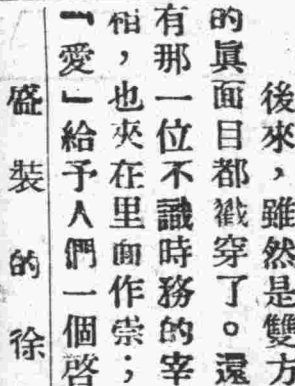 後來，雖然是雙方
的眞面目都戳穿了。還
有那一位不識時務的宰
相，也夾在里面作崇；
「愛」給予人們一個啓
盛裝的徐